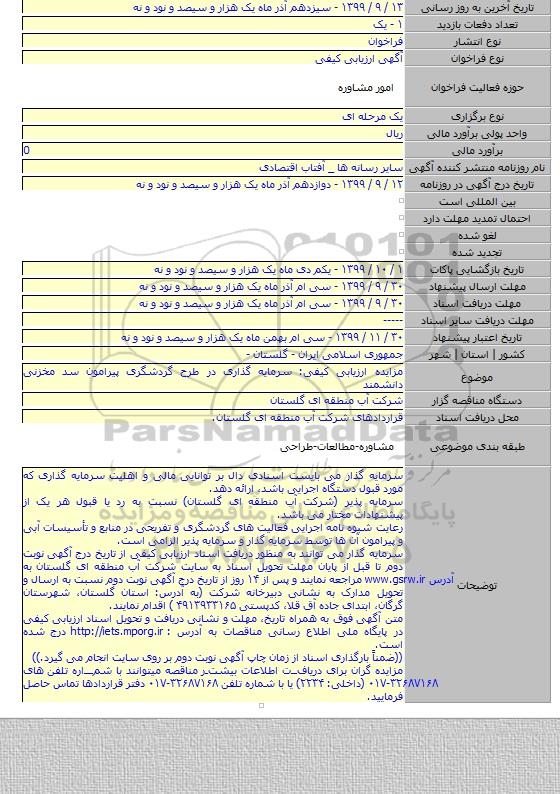 تاریخ آخرین به روز رسانی ۱۳ / ۹ / ۱۳۹۹ - سیزدهم آذر ماه یک هزار و سیصد و نود و نه
تعداد دفعات بازدید ۱ - یک
نوع انتشار فراخوان
نوع فراخوان آگهی ارزیابی کیفی
حوزه فعالیت فراخوان امور مشاوره
نوع برگزاری یک مرحله ای
واحد پولی برآورد مالی ریال
برآورد مالی 0
نام روزنامه منتشر کننده آگهی سایر رسانه ها _ آفتاب اقتصادی
تاریخ درج آگهی در روزنامه ۱۲ / ۹ / ۱۳۹۹ - دوازدهم آذر ماه یک هزار و سیصد و نود و نه
بین المللی است
احتمال تمدید مهلت دارد
لغو شده
تجدید شده
تاریخ بازگشایی پاکات ۱ / ۱۰ / ۱۳۹۹ - یکم دی ماه یک هزار و سیصد و نود و نه
مهلت ارسال پیشنهاد ۳۰ / ۹ / ۱۳۹۹ - سی ام آذر ماه یک هزار و سیصد و نود و نه
مهلت دریافت اسناد ۳۰ / ۹ / ۱۳۹۹ - سی ام آذر ماه یک هزار و سیصد و نود و نه
مهلت دریافت سایر اسناد -----
تاریخ اعتبار پیشنهاد ۳۰ / ۱۱ / ۱۳۹۹ - سی ام بهمن ماه یک هزار و سیصد و نود و نه
کشور | استان | شهر جمهوری اسلامی ایران - گلستان -
موضوع مزایده ارزیابی کیفی: سرمایه گذاری در طرح گردشگری پیرامون سد مخزنی
دانشمند
دستگاه مناقصه گزار شرکت آب منطقه ای گلستان
محل دریافت اسناد قراردادهای شرکت آب منطقه ای گلستان.
ParsNamadData
طبقه بندی موضوعی مشاوره-مطالعات-طراحی
سرمایه گذار می بایست اسنادی دال بر توانایی مالی و اهلیت سرمایه گذاری که
مورد قبول دستگاه اجرایی باشد، ارائه دهد.
سرمایه پذیر (شرکت آب منطقه ای گلستان) نسبت به رد یا قبول هر یک از
پیشنهادات مختار می باشد.
رعایت شیوه نامه اجرایی فعالیت های گردشگری و تفریحی در منابع و تأسیسات آبی
و پیرامون آن ها توسط سرمایه گذار و سرمایه پذیر الزامی است.
سرمایه گذار می توانند به منظور دریافت اسناد ارزیابی کیفی از تاریخ درج آگهی نوبت
دوم تا قبل از پایان مهلت تحویل اسناد به سایت شرکت آب منطقه ای گلستان به
توضیحات آدرس www.gsrw.ir مراجعه نمایند و پس از ۱۴ روز از تاریخ درج آگهی نوبت دوم نسبت به ارسال و
تحویل مدارک به نشانی دبیرخانه شرکت (به آدرس: استان گلستان، شهرستان
گرگان، ابتدای جاده آق قلا، کدپستی ۴۹۱۳۹۳۳۱۶۵ ) اقدام نمایند.
متن آگهی فوق به همراه تاریخ، مهلت و نشانی دریافت و تحویل اسناد ارزیابی کیفی
در پایگاه ملی اطلاع رسانی مناقصات به آدرس : http://iets.mporg.ir درج شده
است.
((ضمناً بارگذاری اسناد از زمان چاپ آگهی نوبت دوم بر روی سایت انجام می گیرد.))
مزایده گران برای دریافت اطلاعات بیشتر مناقصه میتوانند با شماره تلفن های
۳۲۶۸۷۱۶۸-۰۱۷ (داخلی: ۲۲۳۴) یا با شماره تلفن ۳۲۶۸۷۱۶۸-۰۱۷ دفتر قراردادها تماس حاصل
فرمایید.